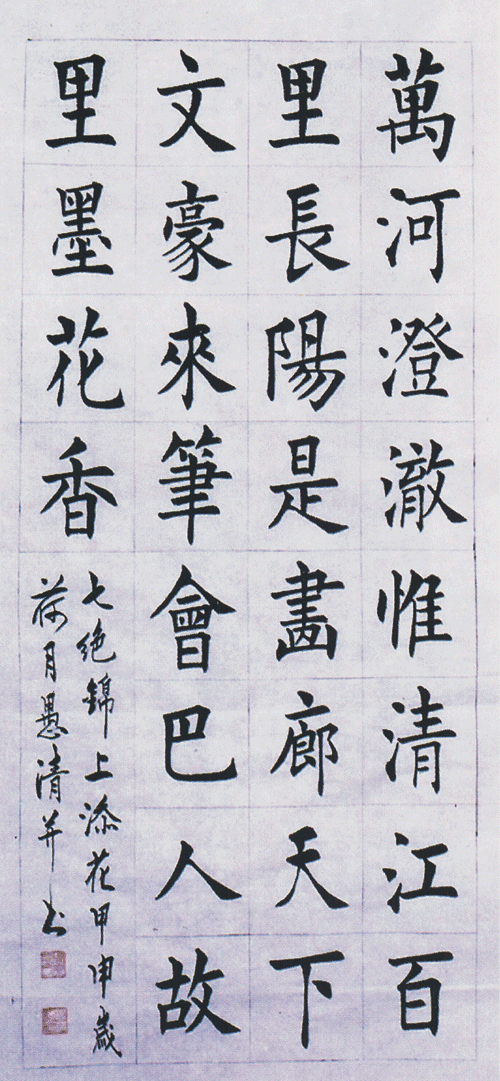 萬河澄澈惟清江百
里長陽是畫廊天下
文豪來筆會巴人故
里墨花香
七绝錦上添花甲申歲
荷月愚清并书